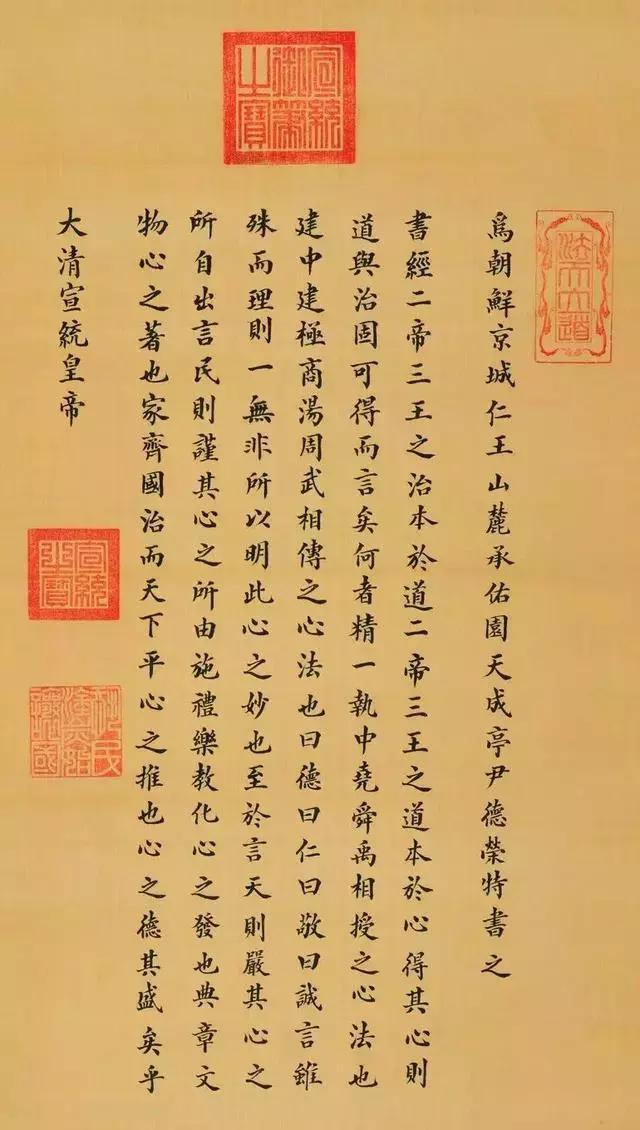 宣統御筆之寶
爲朝鮮京城仁王山麓承佑園天成亭尹德榮特書之
書經二帝三王之治本於道二帝三王之道本於心得其心則
道與治固可得而言矣何者精一執中堯舜禹相授之心法也
建中建極商湯周武相傳之心法也曰德曰仁曰敬曰誠言雖
殊而理則一無非所以明此心之妙也至於言天則嚴其心之
所自出言民則謹其心之所由施禮樂教化心之發也典章文
物心之著也家齊國治而天下平心之推也心之德其盛矣乎
大清宣統皇帝
宣統之寶